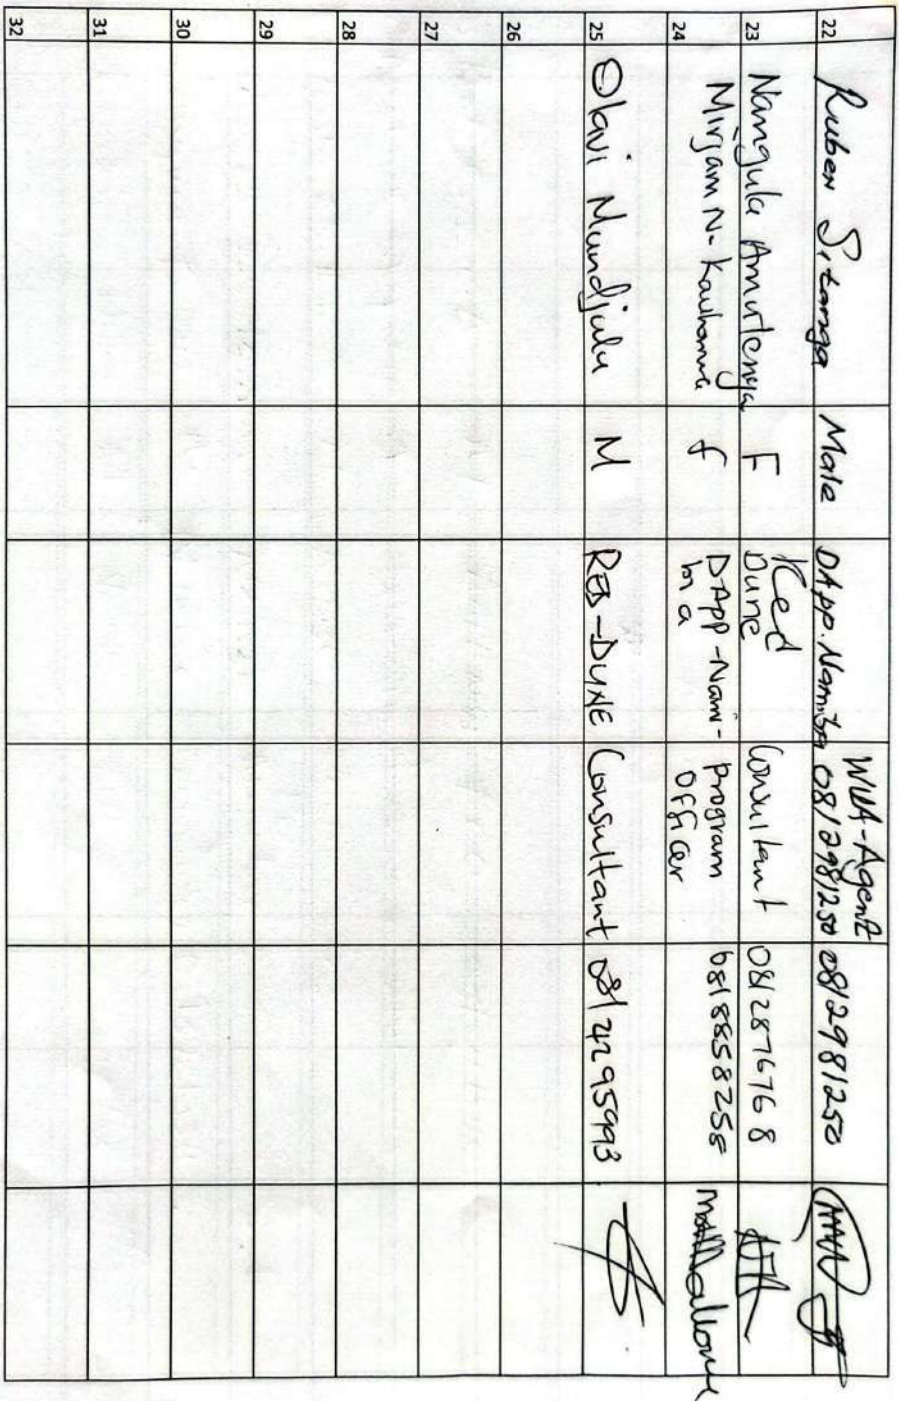 22 Ruben Sitanga Male DApp. Namibia WUA-Agent 0812981250 0812981250
23 Nangula Amutenya F Red Dune Consultant 0812876768
24 Mirjam N. Kauhanwa f DApp-Nam- Program 0818858258
bia Officer
25 Olavi Nundjulu M RED-DUNE Consultant 0812429593
26
27
28
29
30
31
32